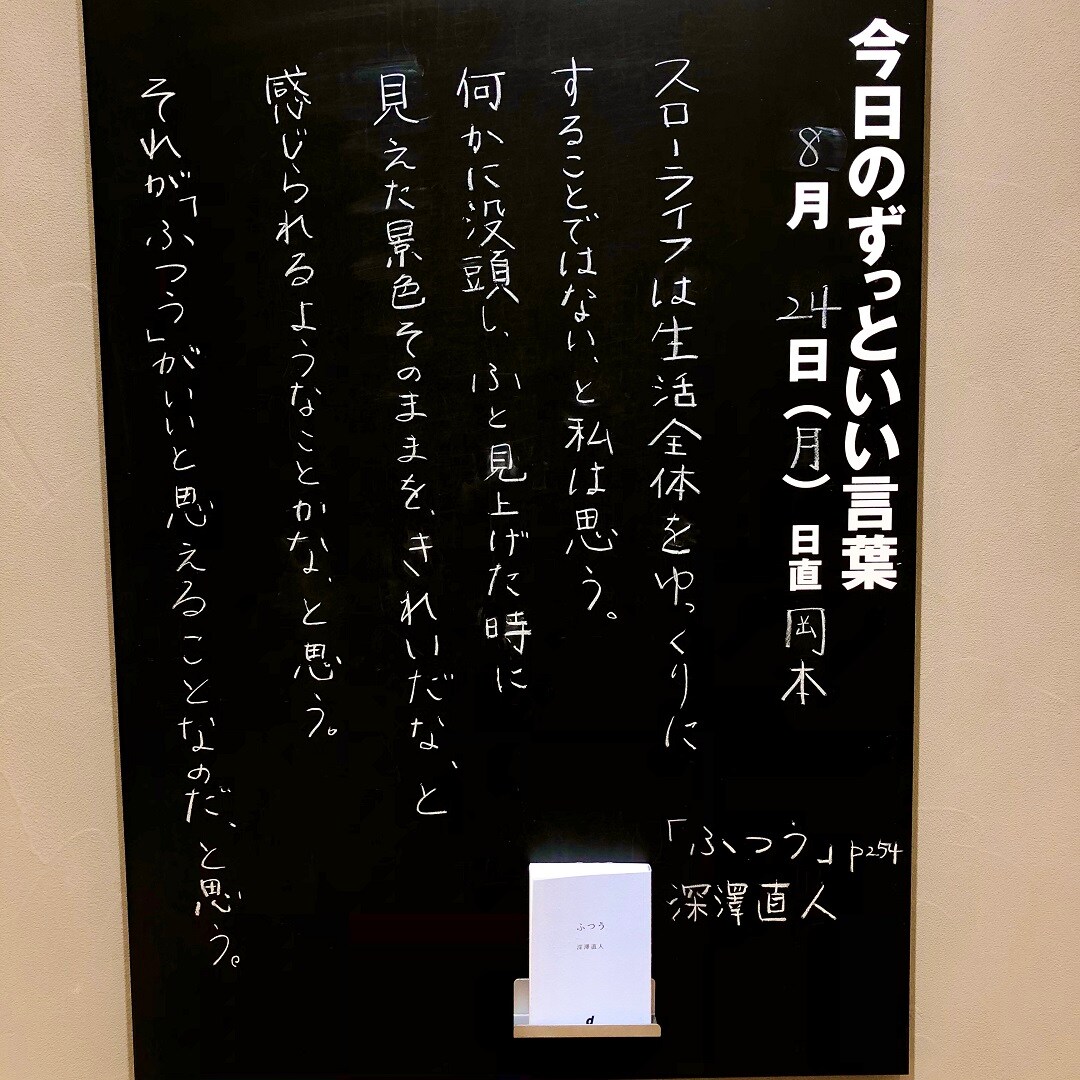 今日のずっといい言葉
8月24日(月) 日直 岡本
スローライフは生活全体をゆっくりに
することではない、と私は思う。
何かに没頭し、ふと見上げた時に
見えた景色そのままを、きれいだな、と
感じられるようなことかな、と思う。
それが「ふつう」がいいと思えることなのだ、と思う。
「ふつう」p254
深澤直人
ふつう
深澤直人
d